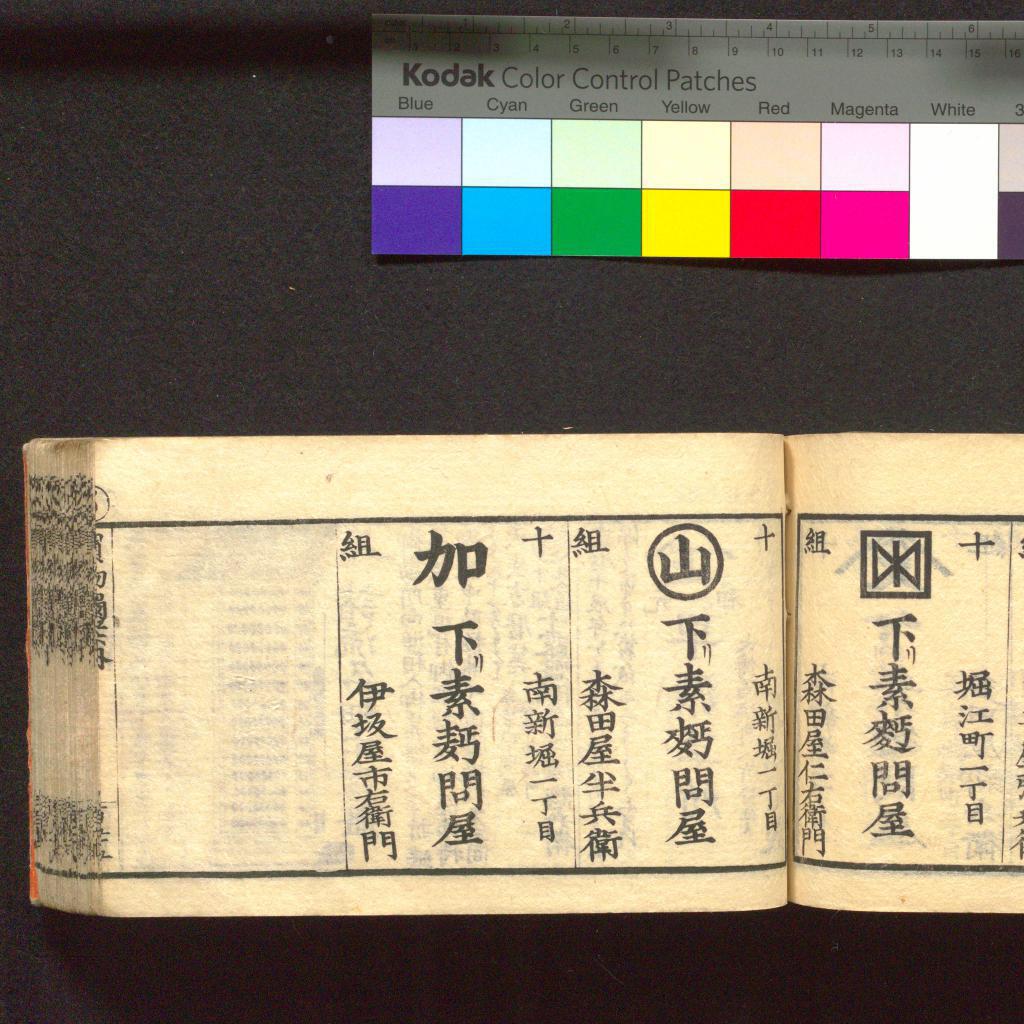 Kodak Color Control Patches
Blue Cyan Green Yellow Red Magenta White
十組
堀江町一丁目
下リ素麪問屋
森田屋仁右衛門
十組
山
南新堀一丁目
下リ素麪問屋
森田屋半兵衛
十組
加
南新堀一丁目
下リ素麪問屋
伊坂屋市右衛門